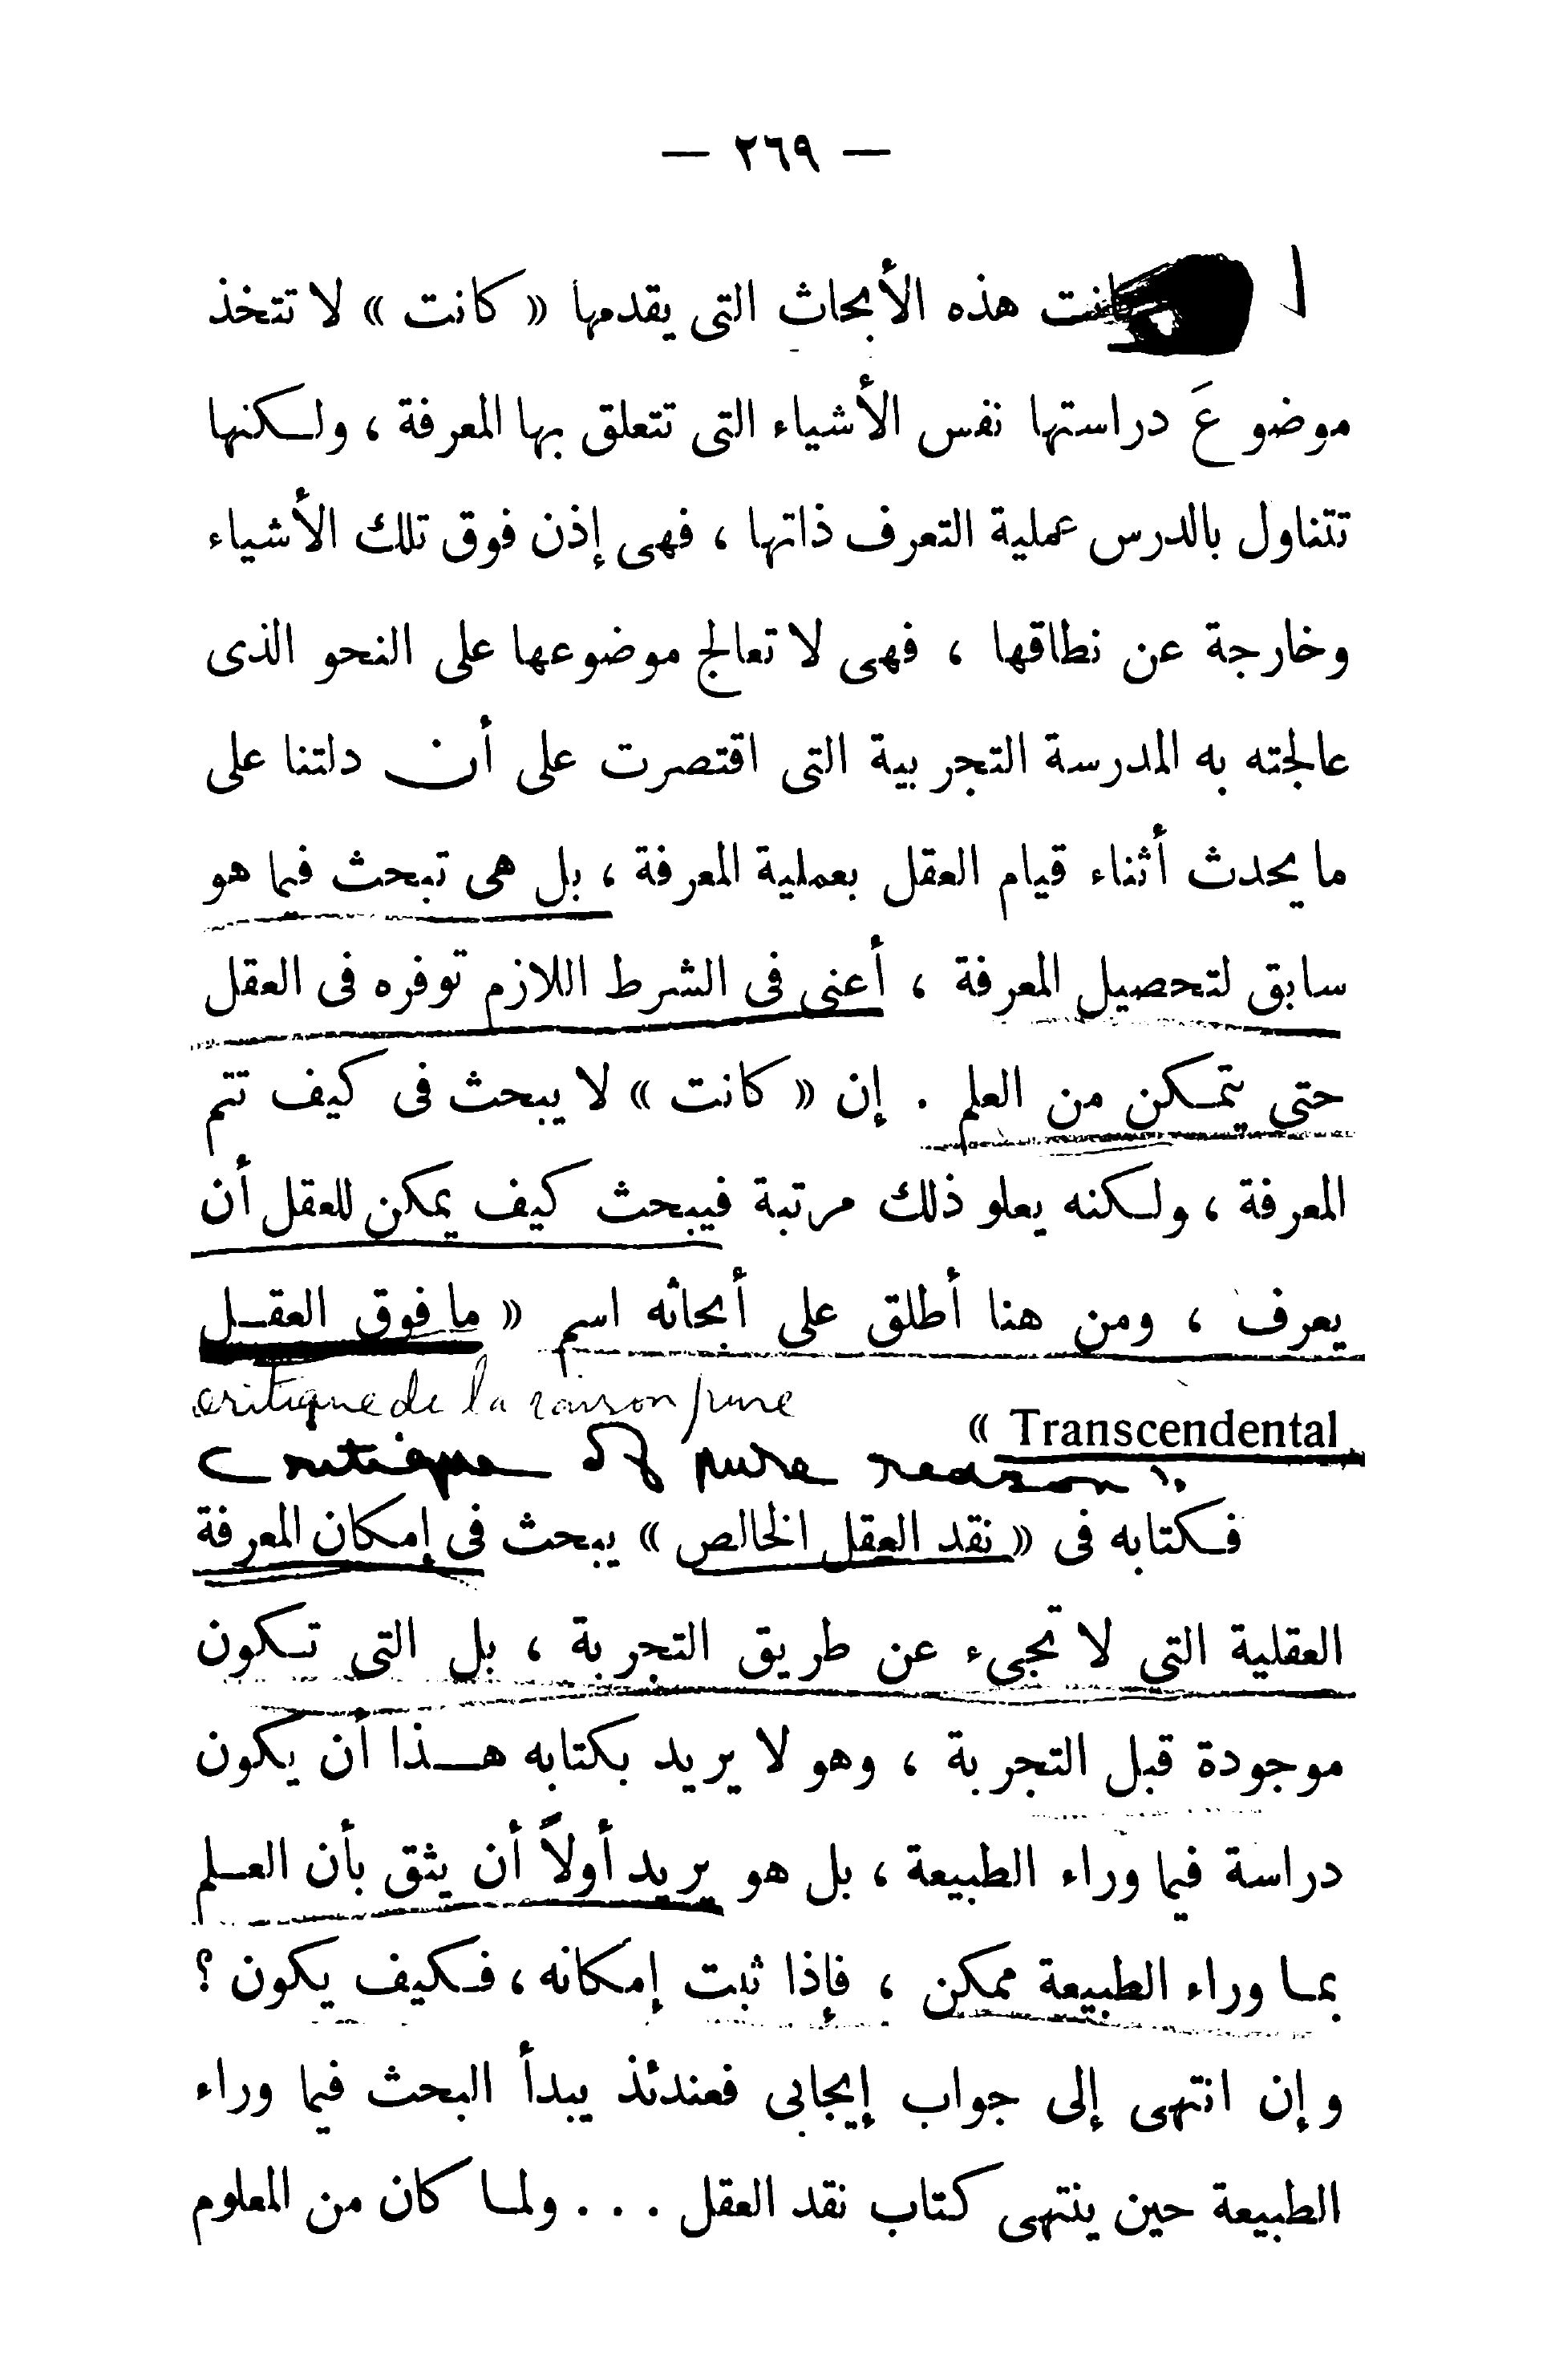 — ٢٦٩ —
كانت هذه الأبحاث التى يقدمها « كانت » لا تتخذ
موضوعَ دراستها نفس الأشياء التى تتعلق بها المعرفة ، ولكنها
تتناول بالدرس عملية التعرف ذاتها ، فهى إذن فوق تلك الأشياء
وخارجة عن نطاقها ، فهى لا تعالج موضوعها على النحو الذى
عالجته به المدرسة التجريبية التى اقتصرت على أن دلتنا على
ما يحدث أثناء قيام العقل بعملية المعرفة ، بل هى تبحث فيما هو
سابق لتحصيل المعرفة ، أعنى فى الشرط اللازم توفره فى العقل
حتى يتمكن من العلم . إن « كانت » لا يبحث فى كيف تتم
المعرفة ، ولكنه يعلو ذلك مرتبة فيبحث كيف يمكن للعقل أن
يعرف ، ومن هنا أطلق على أبحاثه اسم « ما فوق العقل
critique de la raison pure
Transcendental »
critique of pure reason
فكتابه فى « نقد العقل الخالص » يبحث فى إمكان المعرفة
العقلية التى لا تجىء عن طريق التجربة ، بل التى تكون
موجودة قبل التجربة ، وهو لا يريد بكتابه هذا أن يكون
دراسة فيما وراء الطبيعة ، بل هو يريد أولاً أن يثق بأن العلم
بما وراء الطبيعة ممكن ، فإذا ثبت إمكانه ، فكيف يكون ؟
وإن انتهى إلى جواب إيجابى فعندئذ يبدأ البحث فيما وراء
الطبيعة حين ينتهى كتاب نقد العقل . . . ولما كان من المعلوم